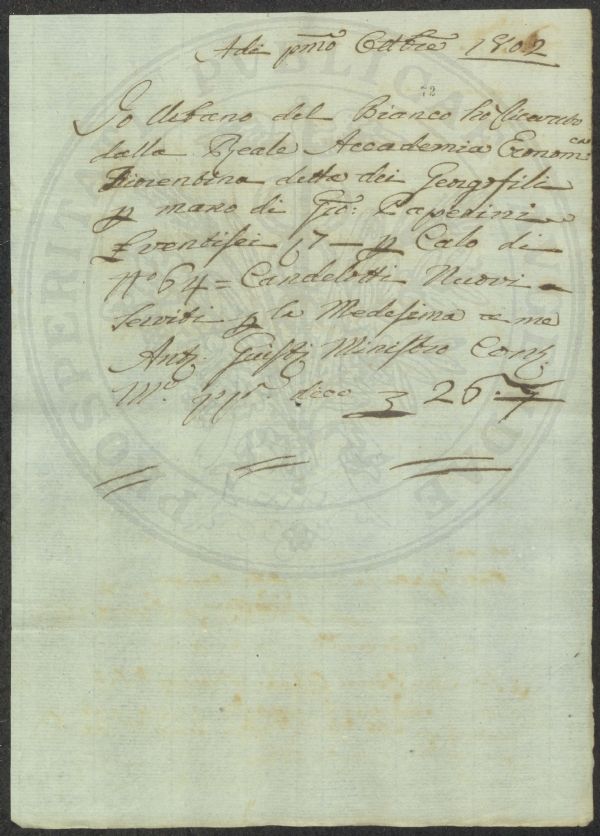 Adi pmo Ottbre 1802
72
Io Urbano del Bianco ho ricevuto
dalla Reale Accademia Econom:ca
Fiorentina detta dei Georgofili
p mano di Gio: Paperini
£ ventisei 17 - p Calo di
No 64 = Candelotti Nuovi
Serviti p la Medesima a me
Ant. Giusti Ministro Cons.
Mo pp dico £ 26.-7
PROSPERITATI PUBLICAE AUGENDAE